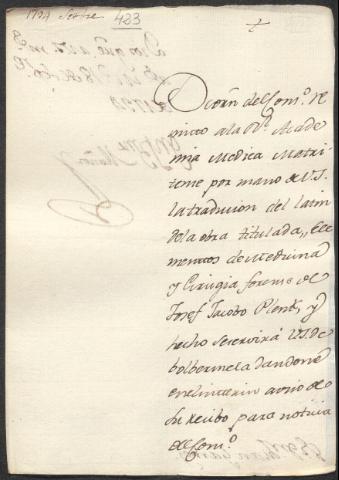 1794 Septre
423
De orn̄ del Conº. re
mito a la Rl. Acade
mia Medica Matri
tense por mano de V.S.
la traducion del latin
de la obra titulada, Ele
mentos de Medicina
y Cirugia forense de
Josef Jacobo Plenk, y
hecho se servirá V.S. de
bolbermela dandome
en el interin aviso de
su recibo para noticia
del Conº.